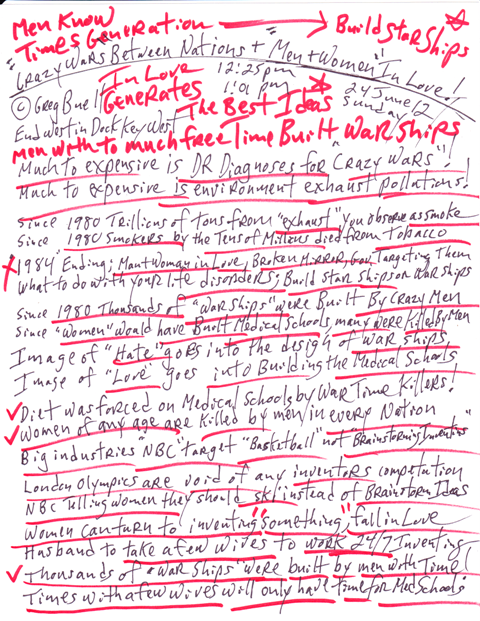 Men Know
Times Generation → Build Star Ships
"Crazy Wars Between Nations + "Men + Women" In Love!
In Love 12:25pm
Generates 1:01 pm
© Greg Buell The Best Ideas 24 June 12
Sunday
End West in Dock Key West
Men with to much free Time Built War Ships
Much to expensive is DR Diagnoses for "Crazy Wars"!
Much to expensive is environment exhaust pollutions!
Since 1980 Trillions of tons from "exhaust" you observe as smoke
Since 1980 Smokers by the Tens of Millions died from Tobacco
1984 Ending; Man + woman in Love, Broken Mirror, Gov. Targeting Them
What to do with your life disorders; Build Star Ships or War Ships
Since 1980 Thousands of "War Ships" were Built By Crazy Men
Since "Women" would have Built Medical Schools, many were Killed By Men
Image of "Hate" goes into the design of War Ships
Image of 'Love' goes into Building the Medical Schools
Diet was forced on Medical Schools by War Time Killers!
Women of any age are killed by men in every Nation
Big industries "NBC" target "Basketball" not "Brainstorming Invention"
London Olympics are void of any inventors competation
NBC Telling women they should ski instead of Brainstorm Ideas
Women can turn to inventing "Something", fall in Love
Husband to take a few wives to work 24/7 Inventing
Thousands of "War Ships" were built by men with Time!
Times with a few wives will only have time for Med Schools